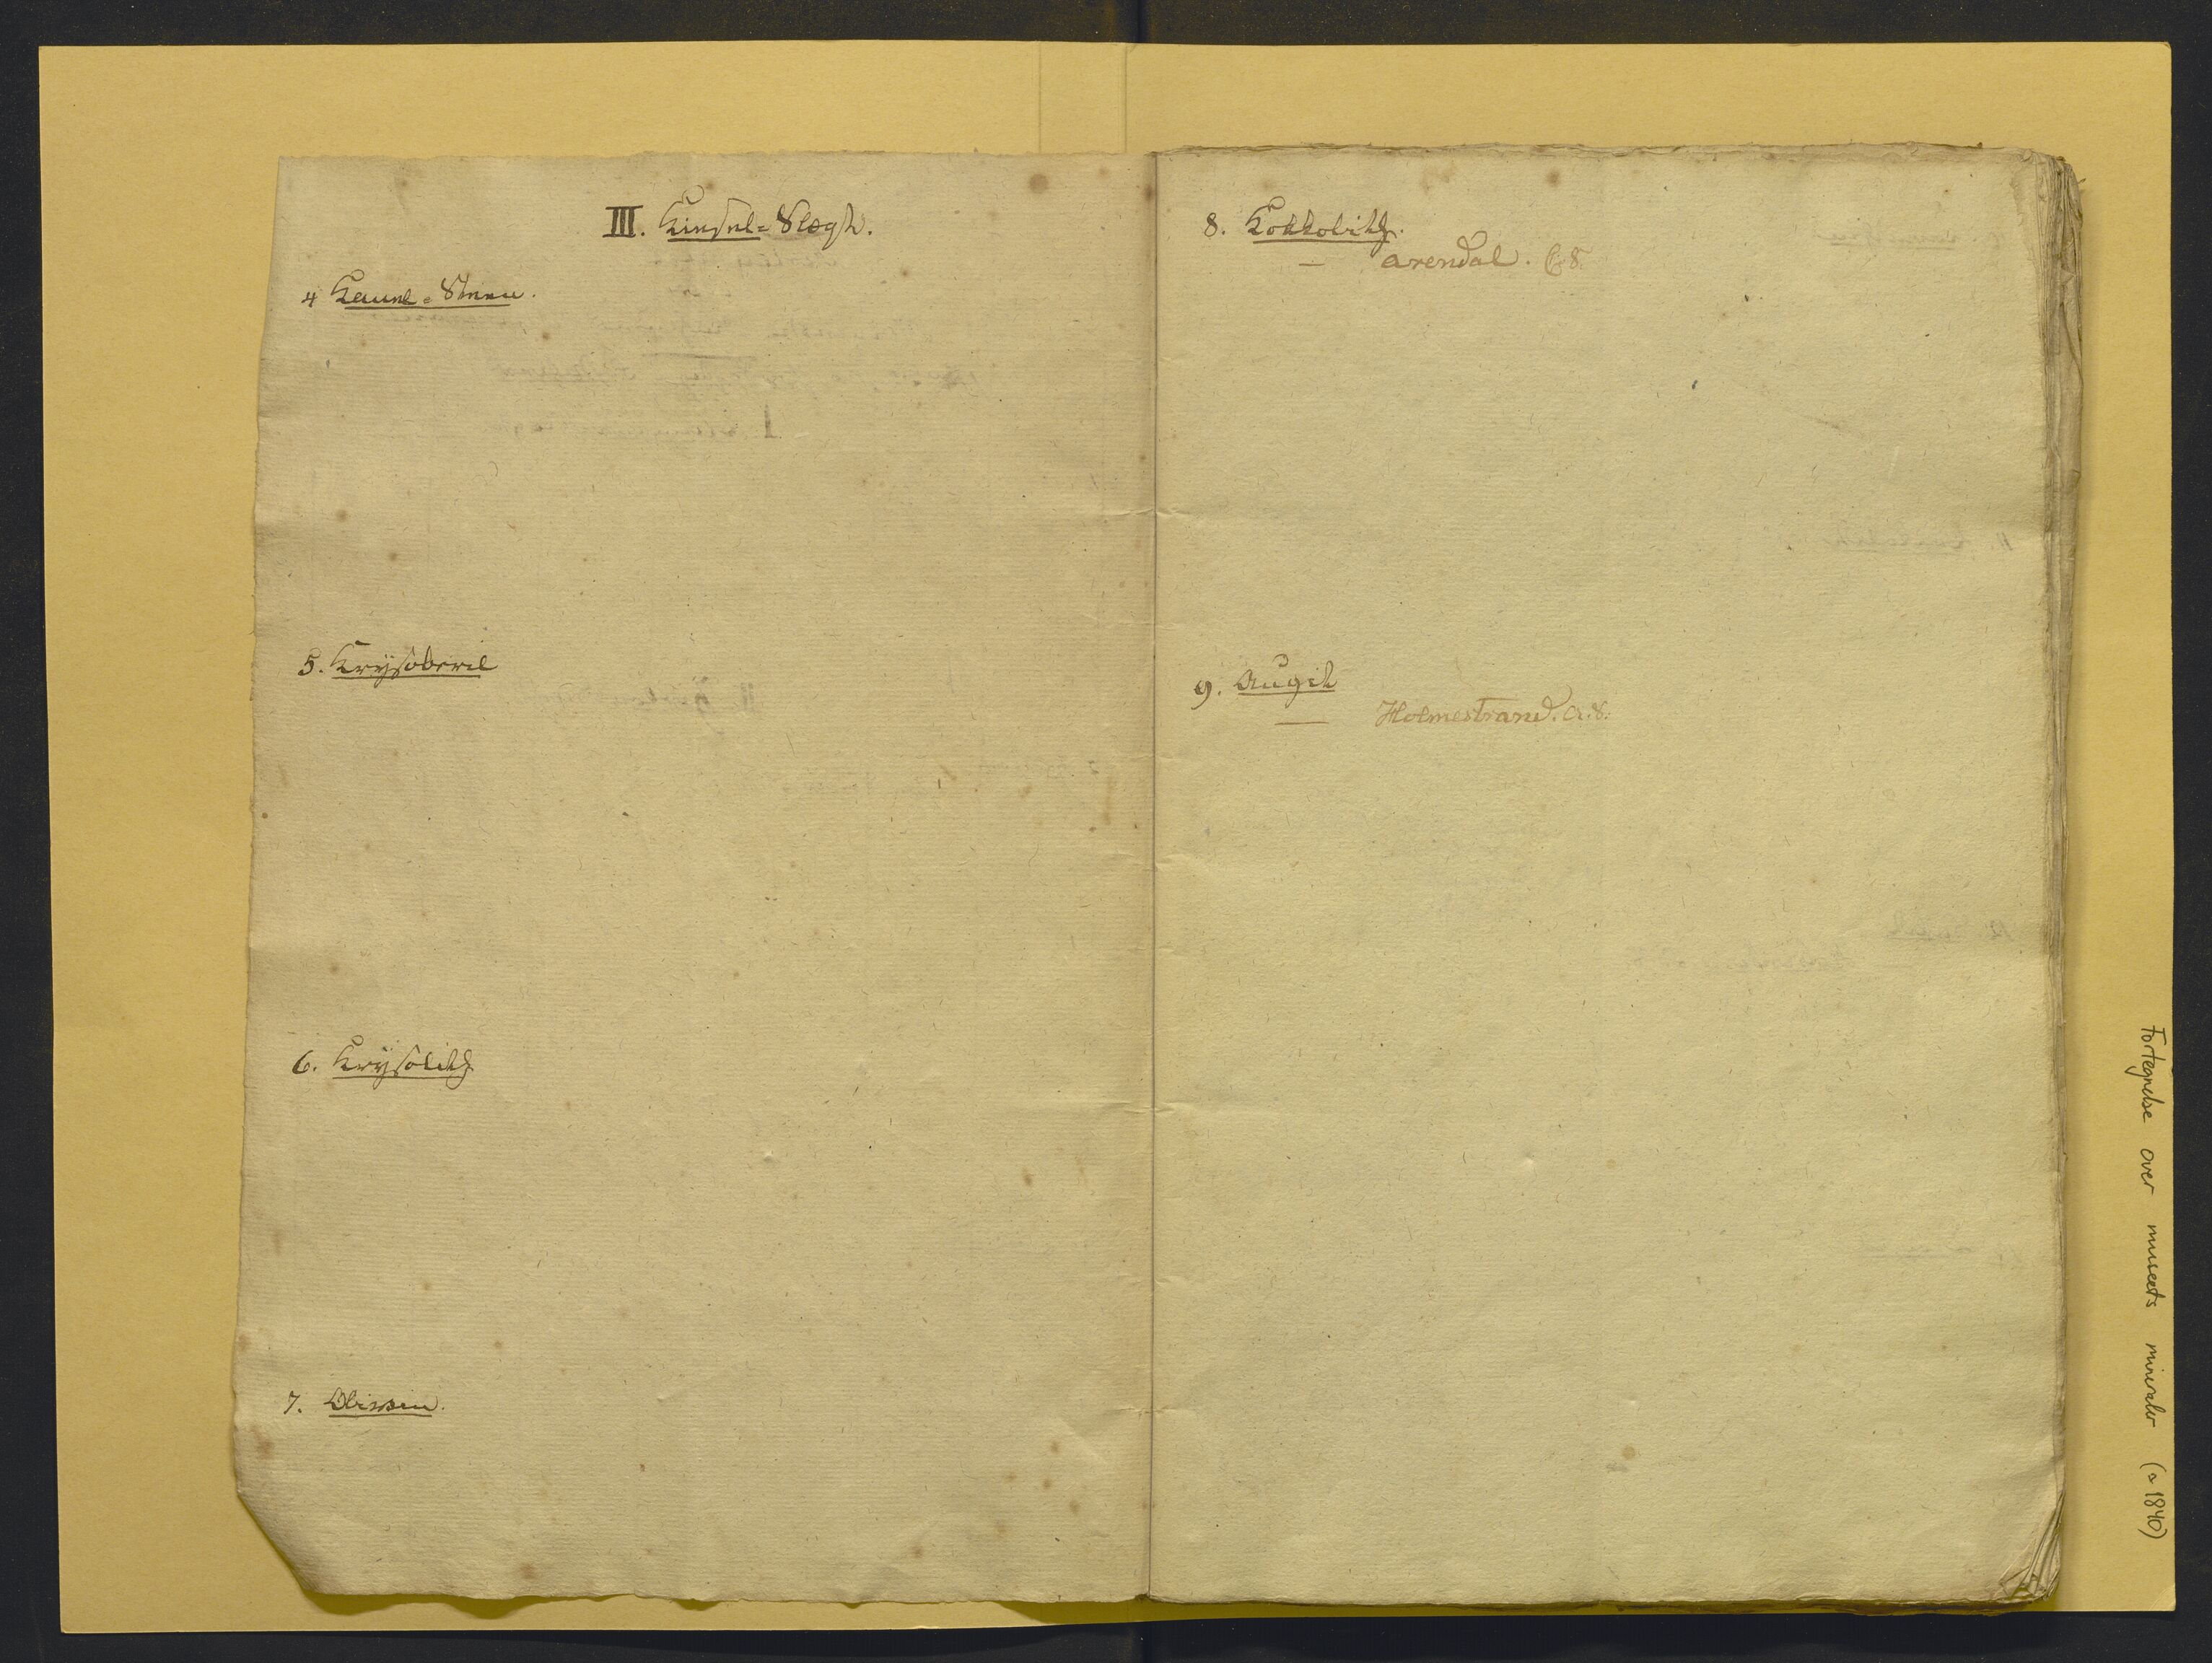 III. Kiesel=Slægt.
4 Kaneel=Steen.
5. Krÿsoberil
6. Krÿsolith
7. Olivin.
8. Kokkolith.
— Arendal. C. S.
9. Augit
— Holmestrand. A. S.
Fortegnelse over museets mineraler (ca 1840)